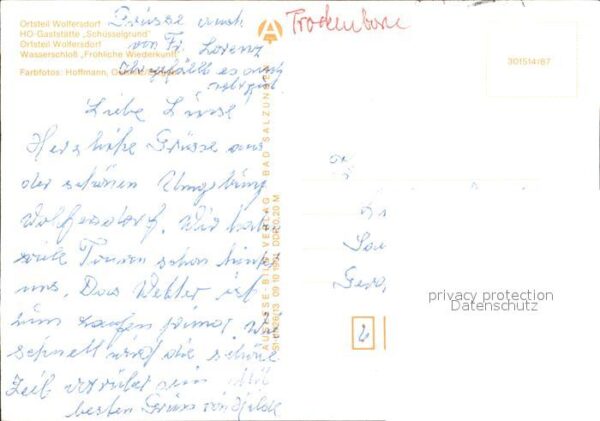 Ortsteil Wolfersdorf
HO-Gaststätte „Schüsselgrund“
Ortsteil Wolfersdorf
Wasserschloß „Fröhliche Wiederkunft“
Farbfotos: Hoffmann,
Grüsse auch
von Fr. Lorenz
Ihr gefällt es auch
sehr gut
Trockenborn
301514187
Liebe
Herzliche Grüsse aus
der schönen Umgebung
Wolfersdorf. Wir haben
viele Touren schon hinter
uns. Das Wetter ist
zum Laufen prima. Wie
schnell wird die schöne
Zeit vorüber sein. Mit
besten Grüssen Hilde
BILD-VERLAG · BAD SALZUNGEN
09 10 DDR 0,20 M
Gera,
privacy protection
Datenschutz